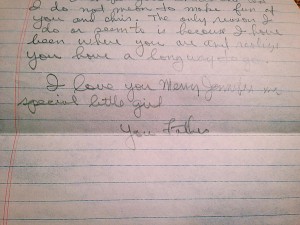 I do not mean to make fun of
you and chris. The only reason I
do or seem to is because I have
been where you are and
you have a long way to go
I love you Merry Jennifer
special little girl
You Father